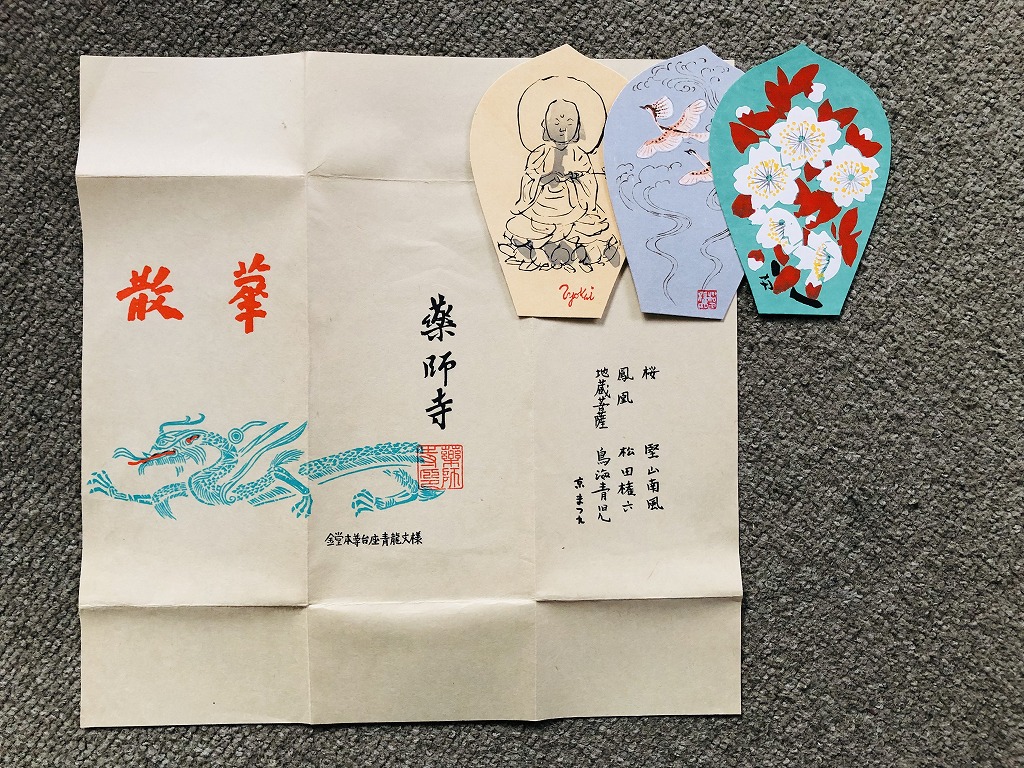 散華
薬師寺
薬師寺印
金堂本尊台座青龍文様
桜 堅山南風
鳳凰 松田権六
地蔵菩薩 鳥海青児
京まつ九